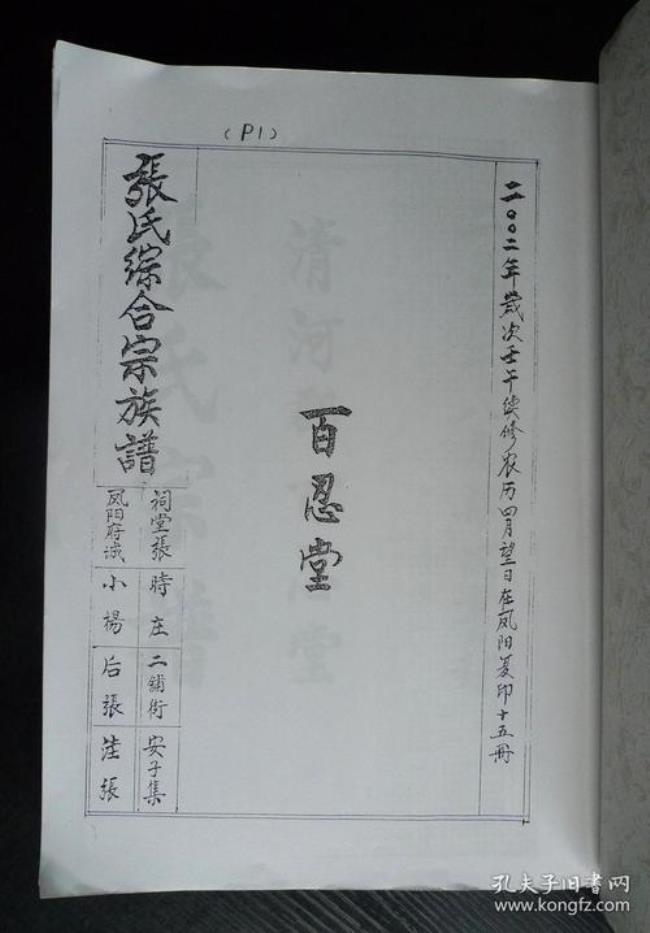 (P1)
二〇〇二年岁次壬午续修农历四月望日在凤阳复印十五册
百忍堂
張氏綜合宗族譜
祠堂張
時庄
二铺街
安子集
凤阳府城
小楊
后張
洼張
清河
堂
張氏宗譜
孔夫子旧书网
www.kongfz.com